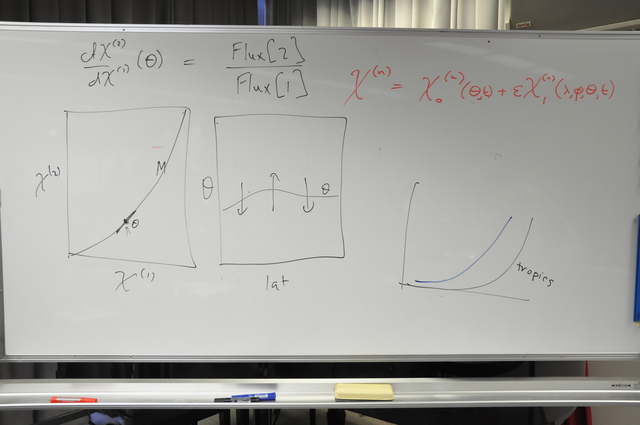 dχ⁽²⁾/dχ⁽¹⁾ (θ) = Flux[2]/Flux[1]
χ⁽ⁿ⁾ = χ₀⁽ⁿ⁾(θ,t) + εχ₁⁽ⁿ⁾(λ,φ,θ,t)
χ⁽²⁾
M
θ
χ⁽¹⁾
θ
θ
lat
tropics